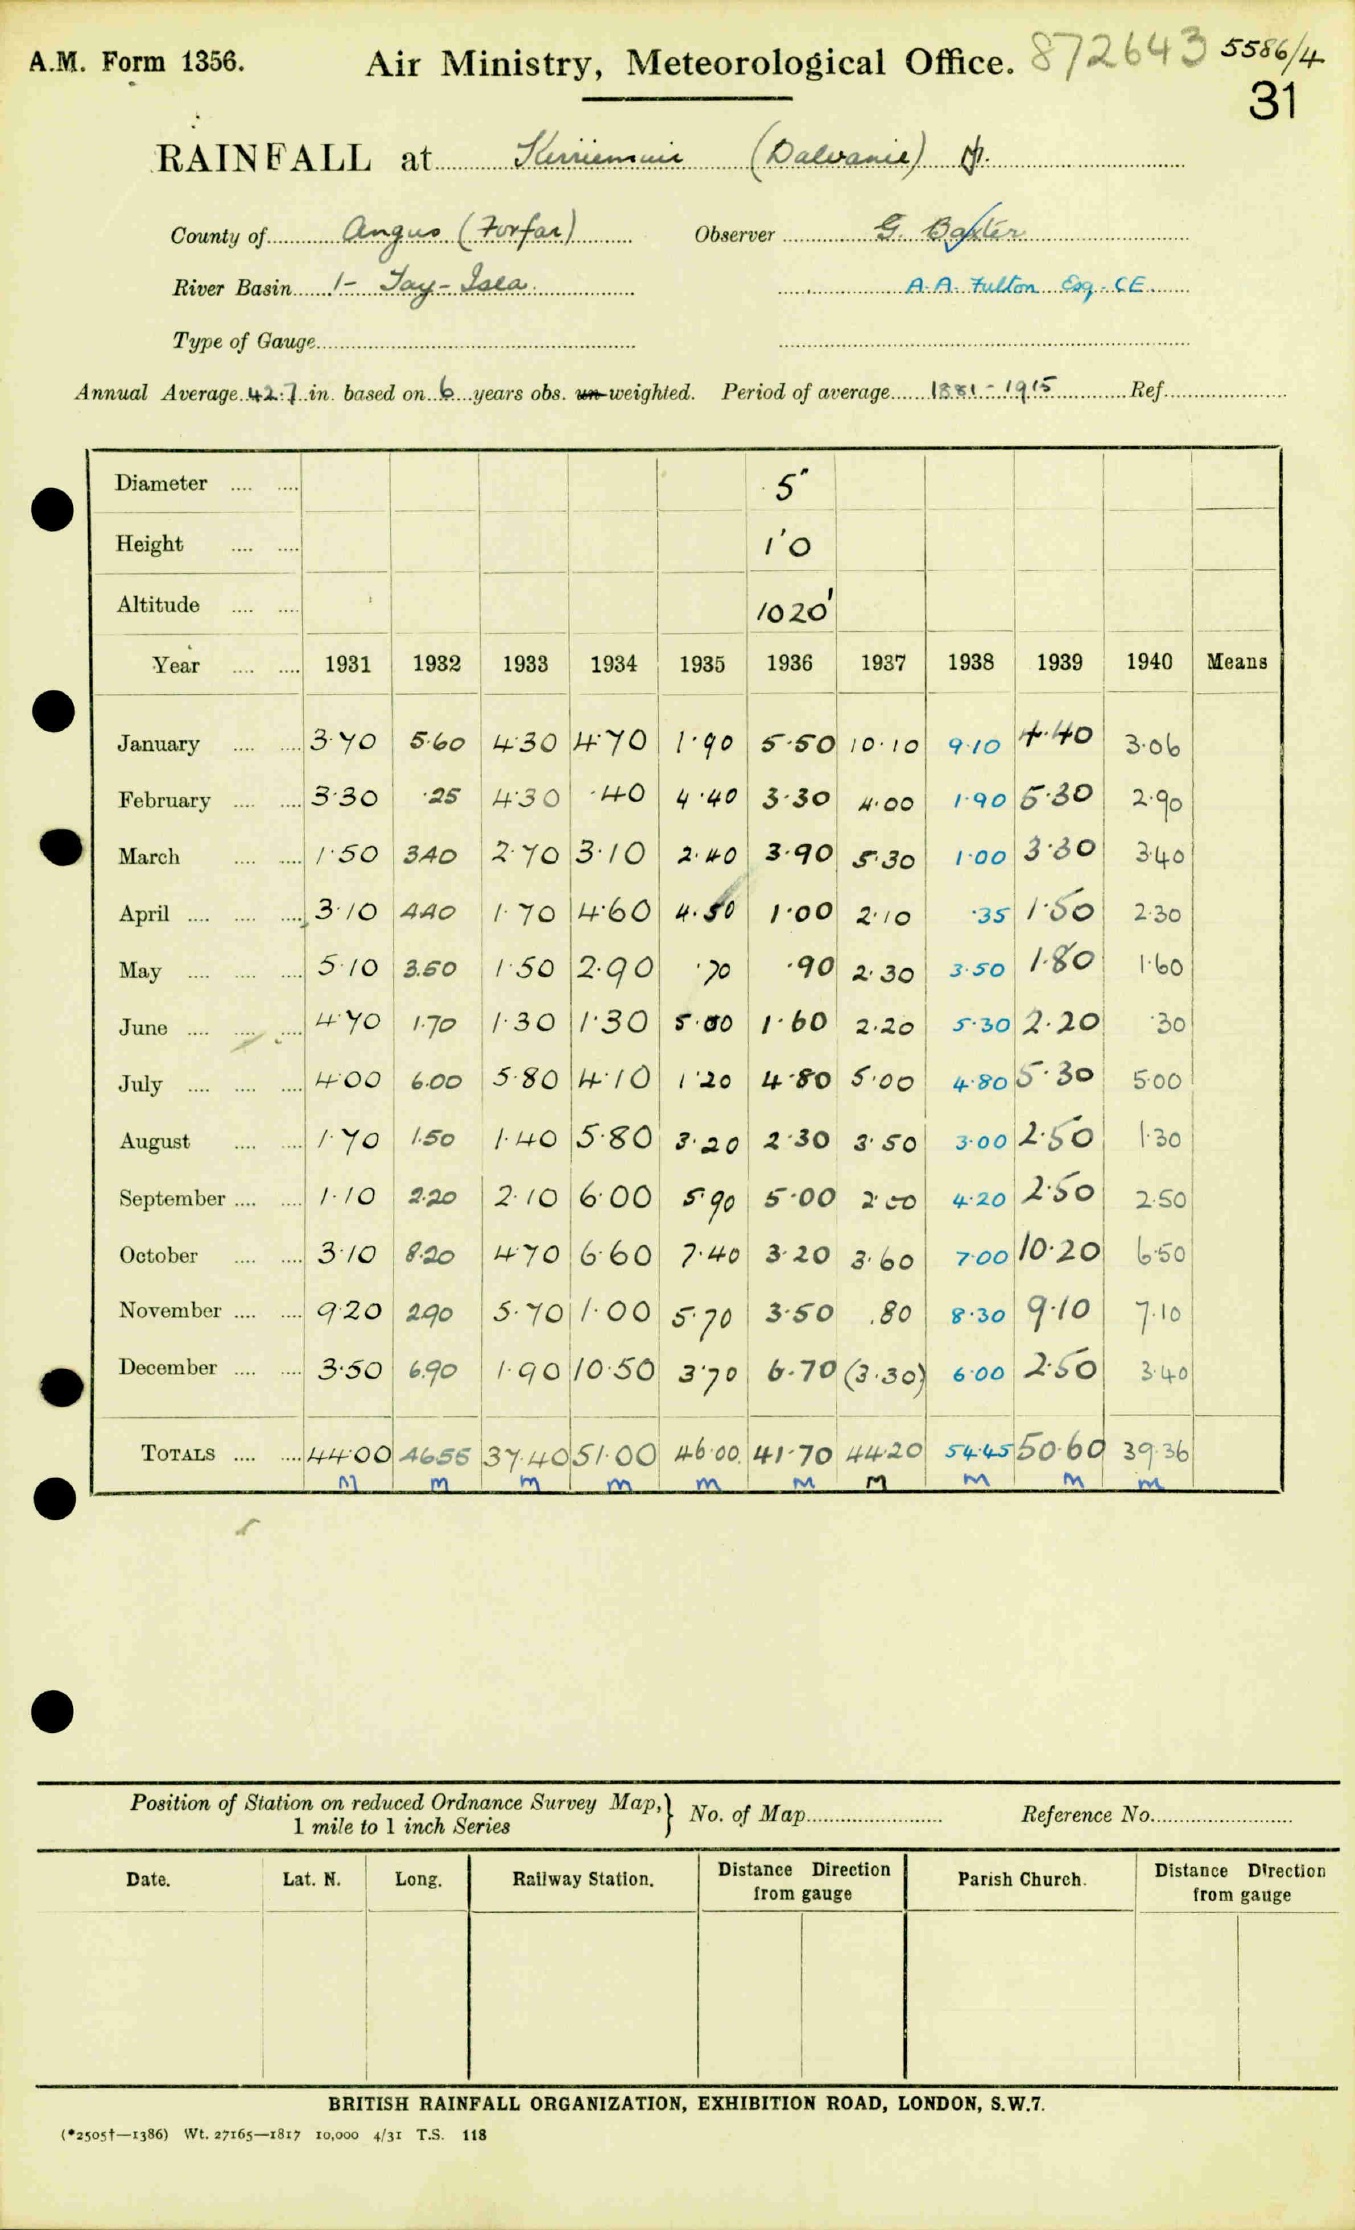 A.M. Form 1356. Air Ministry, Meteorological Office. 872643 5586/4
31
RAINFALL at Kirriemuir (Dalvanie)
County of Angus (Forfar) Observer G. Baxter
River Basin 1- Tay - Isla A.A. Fulton Esq. CE.
Type of Gauge
Annual Average 42.7 in. based on 6 years obs. un-weighted. Period of average 1881-1915 Ref.
Diameter 5"
Height 1'0
Altitude 1020'
Year 1931 1932 1933 1934 1935 1936 1937 1938 1939 1940 Means
January 3.70 5.60 4.30 4.70 1.90 5.50 10.10 9.10 4.40 3.06
February 3.30 .25 4.30 .40 4.40 3.30 4.00 1.90 5.30 2.90
March 1.50 3.40 2.70 3.10 2.40 3.90 5.30 1.00 3.30 3.40
April 3.10 4.40 1.70 4.60 4.50 1.00 2.10 .35 1.50 2.30
May 5.10 3.50 1.50 2.90 .70 .90 2.30 3.50 1.80 1.60
June 4.70 1.70 1.30 1.30 5.00 1.60 2.20 5.30 2.20 .30
July 4.00 6.00 5.80 4.10 1.20 4.80 5.00 4.80 5.30 5.00
August 1.70 1.50 1.40 5.80 3.20 2.30 3.50 3.00 2.50 1.30
September 1.10 2.20 2.10 6.00 5.90 5.00 2.00 4.20 2.50 2.50
October 3.10 8.20 4.70 6.60 7.40 3.20 3.60 7.00 10.20 6.50
November 9.20 2.90 5.70 1.00 5.70 3.50 .80 8.30 9.10 7.10
December 3.50 6.90 1.90 10.50 3.70 6.70 (3.30) 6.00 2.50 3.40
TOTALS 44.00 46.55 37.40 51.00 46.00 41.70 44.20 54.45 50.60 39.36
M m m m m m M m m m
Position of Station on reduced Ordnance Survey Map, } No. of Map Reference No.
1 mile to 1 inch Series
Date. Lat. N. Long. Railway Station. Distance Direction from gauge Parish Church. Distance Direction from gauge
BRITISH RAINFALL ORGANIZATION, EXHIBITION ROAD, LONDON, S.W.7.
(*2505†—1386) Wt. 27165—1817 10,000 4/31 T.S. 118